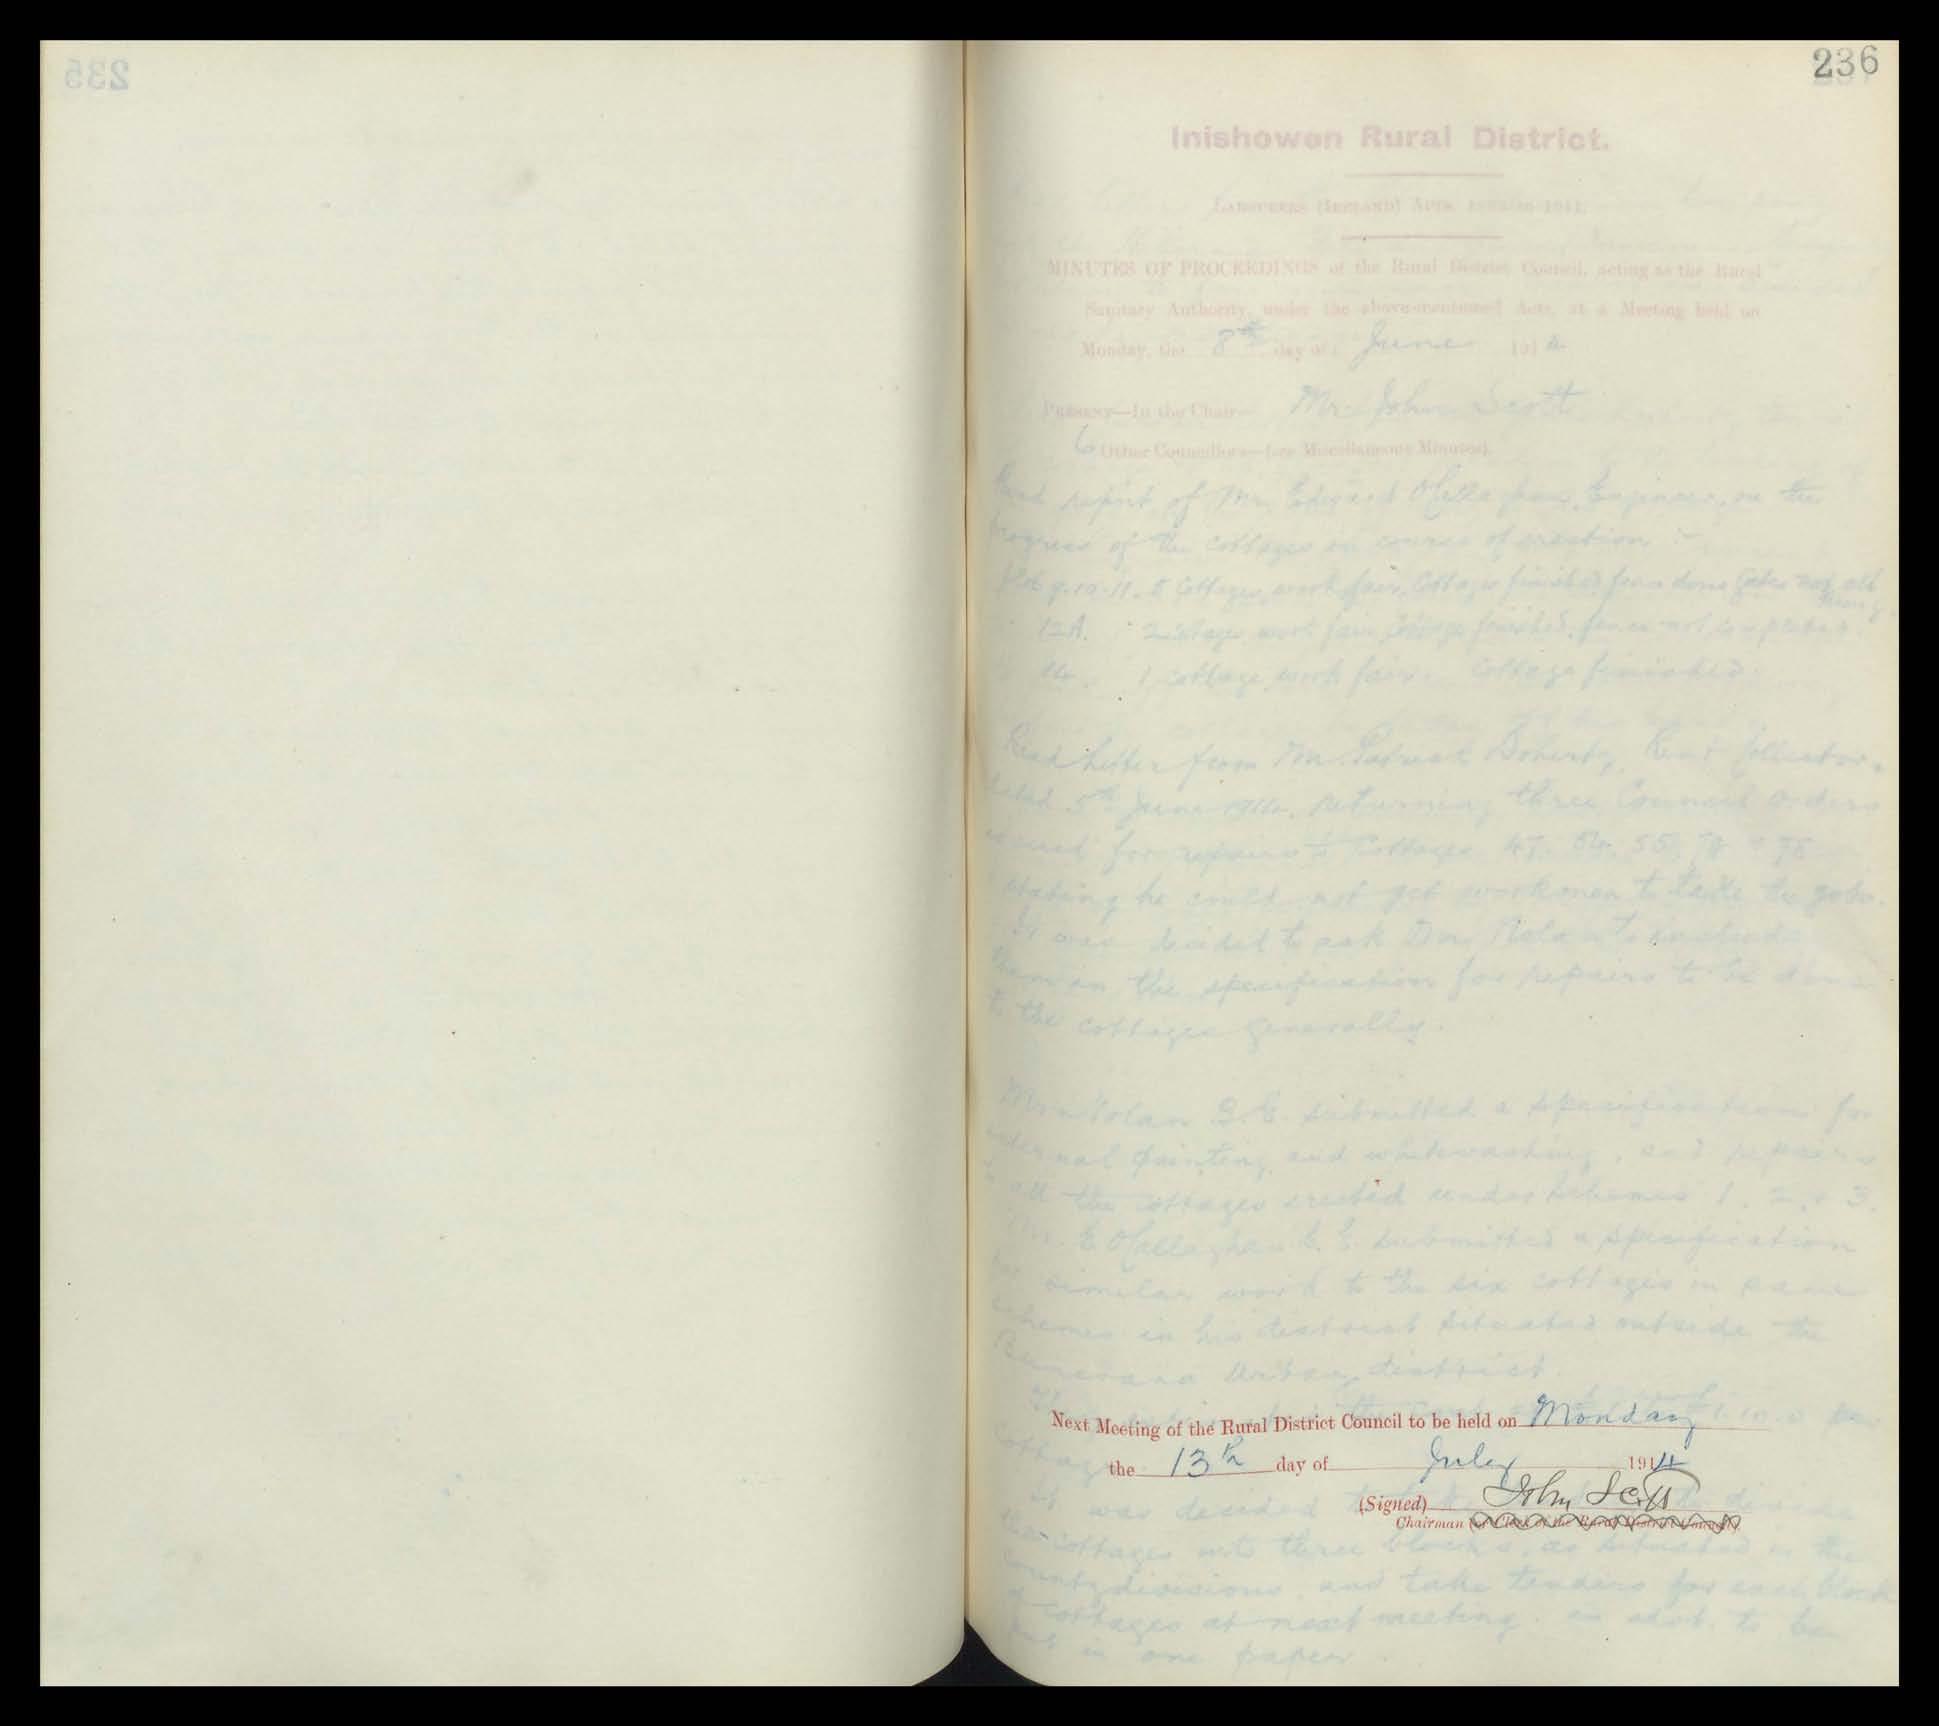 235
236
Inishowen Rural District.
LABOURERS (IRELAND) ACTS, 1911.
MINUTES OF PROCEEDINGS of the Rural District Council, acting as the Rural
Sanitary Authority, under the above-mentioned Acts, at a Meeting held on
Monday, the 8th day of June 1914
PRESENT—In the Chair— Mr John Scott
6 Other Councillors—(see Miscellaneous Minutes).
Read report of Mr Edward O'Callaghan, Engineer, on the
progress of the cottages in course of erection :-
9.10.11. 5 Cottages, work fair, Cottages finished
12A. 2 cottages work fair, finished, fence not completed
14. 1 cottage, work fair. Cottage finished.
Read letter from Mr Patrick Doherty, Rent Collector,
dated 5th June 1914, returning three Council orders
issued for repairs to Cottages 47.
stating he could not get workmen to take the jobs.
It was decided to ask Mr Nolan to include
them in the specification for repairs to be done
to the cottages generally.
Mr Nolan submitted a specification for
painting and whitewashing, and repairs
to all the cottages erected under Schemes 1. 2. & 3.
Mr. E O'Callaghan C. E. submitted a specification
for similar work to the six cottages in same
schemes in his district situated outside the
Buncrana Urban district.
Next Meeting of the Rural District Council to be held on Monday
the 13th day of July 1914
(Signed) John Scott
Chairman (or Clerk of the Rural District Council).
It was decided to divide
the cottages into three blocks, as situated in the
county divisions, and take tenders for each block
of cottages at next meeting. to be
put in one paper.